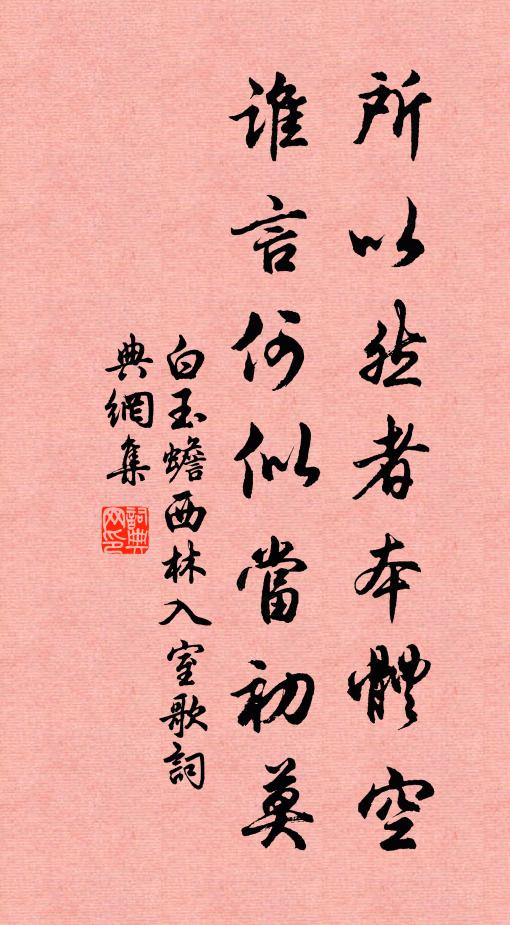 所以然者本體空
誰言何似當初莫
白玉蟾西林入室歌詞
典網集
詞典網印